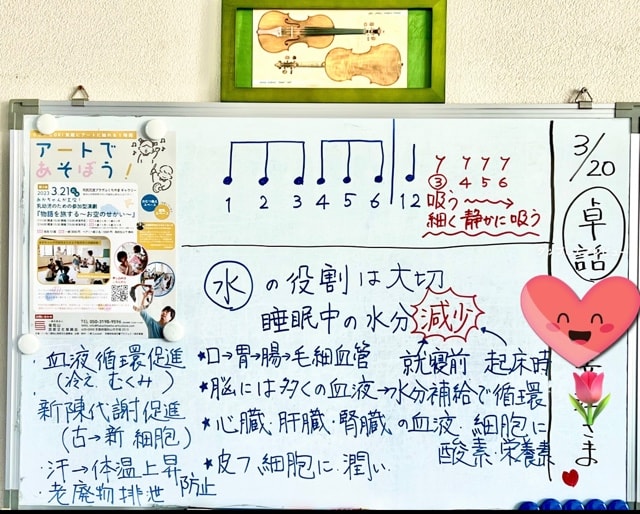 アートで
あそぼう!
2023 3.21
乳幼児のための参加型演劇
『物語を旅する～お空のせかい～』
TEL 050-3198-9594
1 2 3 4 5 6 12
γ γ γ γ
③ 4 5 6
吸う →
細く静かに吸う
3/20
卓話
さま
水の役割は大切
睡眠中の水分減少
就寝前 起床時
★口→胃→腸→毛細血管
★脳には多くの血液→水分補給で循環
★心臓・肝臓・腎臓の血液・細胞に
酸素・栄養素
★皮フ細胞に潤い
・血液循環促進
(冷え むくみ)
・新陳代謝促進
(古→新 細胞)
・汗→体温上昇
防止
・老廃物排泄